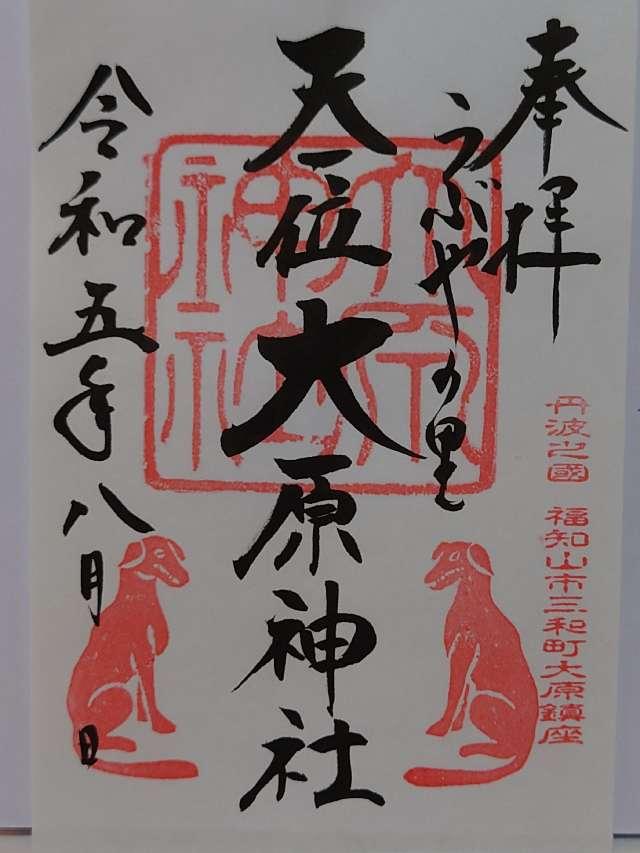 奉拝
うぶやの里
丹波之國 福知山市三和町大原鎮座
天一位大原神社
大原神社
令和五年八月 日